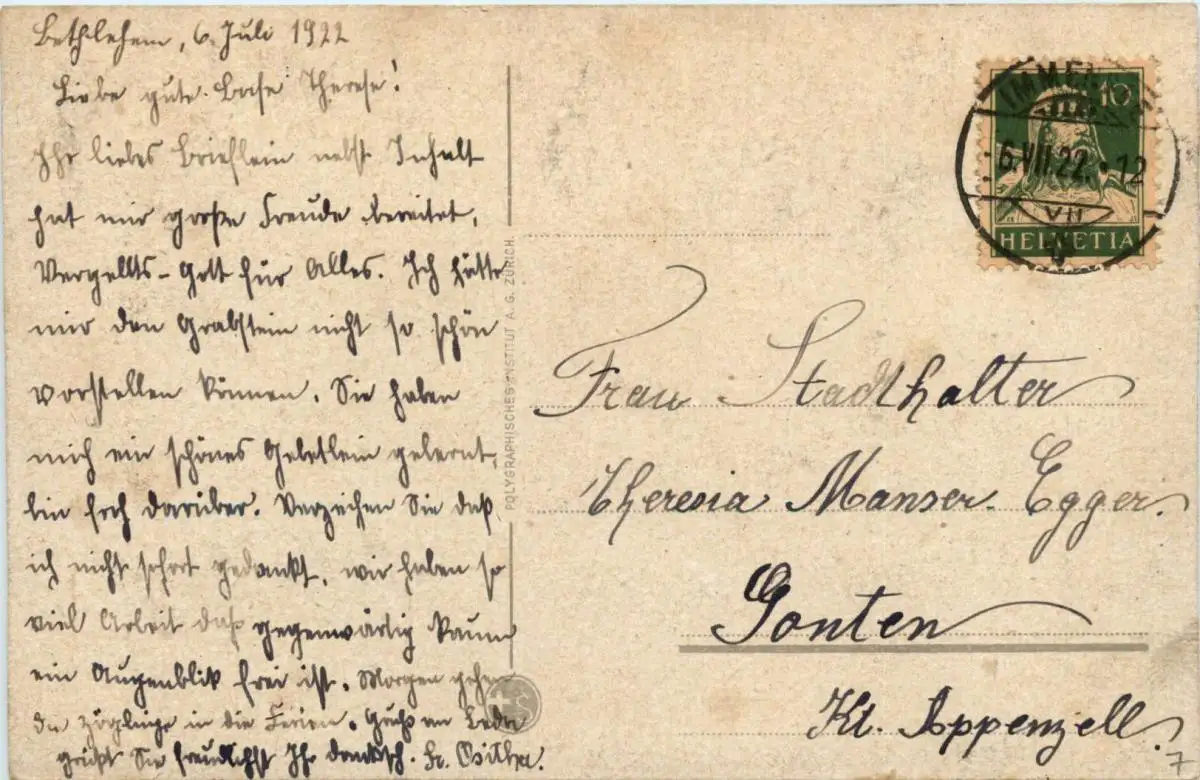 Bethlehem, 6. Juli 1922
Liebe gute Base Therese!
Ihr liebes Brieflein nebst Inhalt
hat mir große Freude bereitet,
Vergellts-Gott für Alles. Ich hätte
mir den Grabstein nicht so schön
vorstellen können. Sie haben
mich ein schönes Gebetlein gelernt,
bin froh darüber. Verzeihen Sie daß
ich nicht sofort gedankt, wir haben so
viel Arbeit daß gegenwärtig kaum
ein Augenblik frei ist. Morgen gehen
die Zöglinge in die Ferien.
grüßt Sie freundlichst Ihr
POLYGRAPHISCHES INSTITUT A. G. ZÜRICH
10
HELVETIA
6.VII.22.·12
VII
Frau Stadthalter
Theresia Manser-Egger.
Gonten
Kt. Appenzell.
7